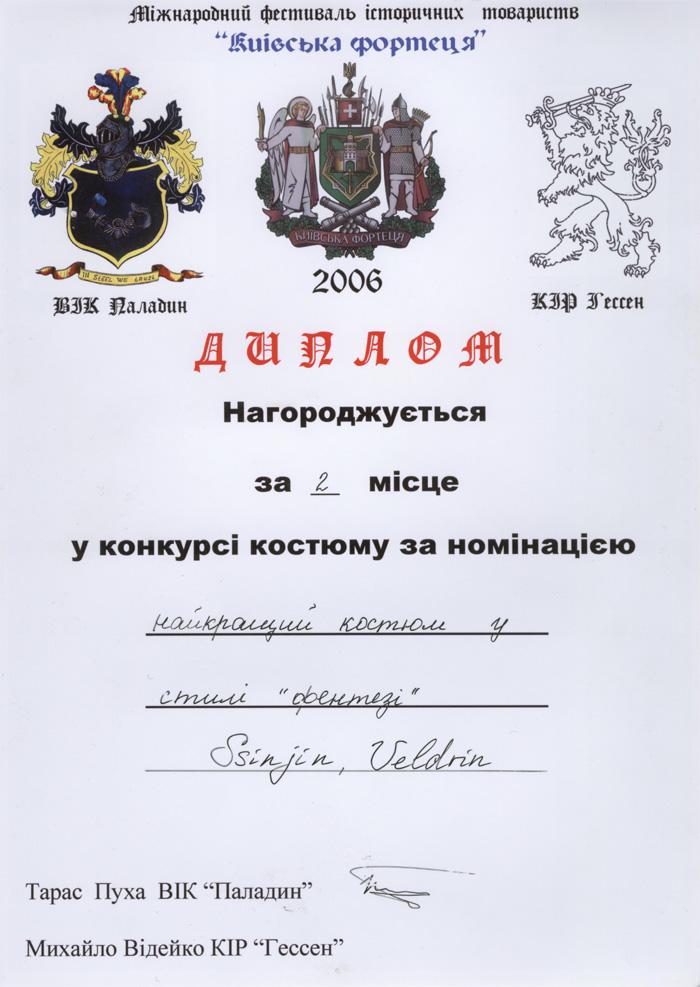 Міжнародний фестиваль історичних товариств
“Київська фортеця”
IN STEEL WE TRUST
КИЇВСЬКА ФОРТЕЦЯ
2006
ВІК Паладин
КІР Гессен
ДИПЛОМ
Нагороджується
за 2 місце
у конкурсі костюму за номінацією
найкращий костюм у
стилі "фентезі"
Ssinjin, Veldrin
Тарас Пуха ВІК “Паладин”
Михайло Відейко КІР “Гессен”